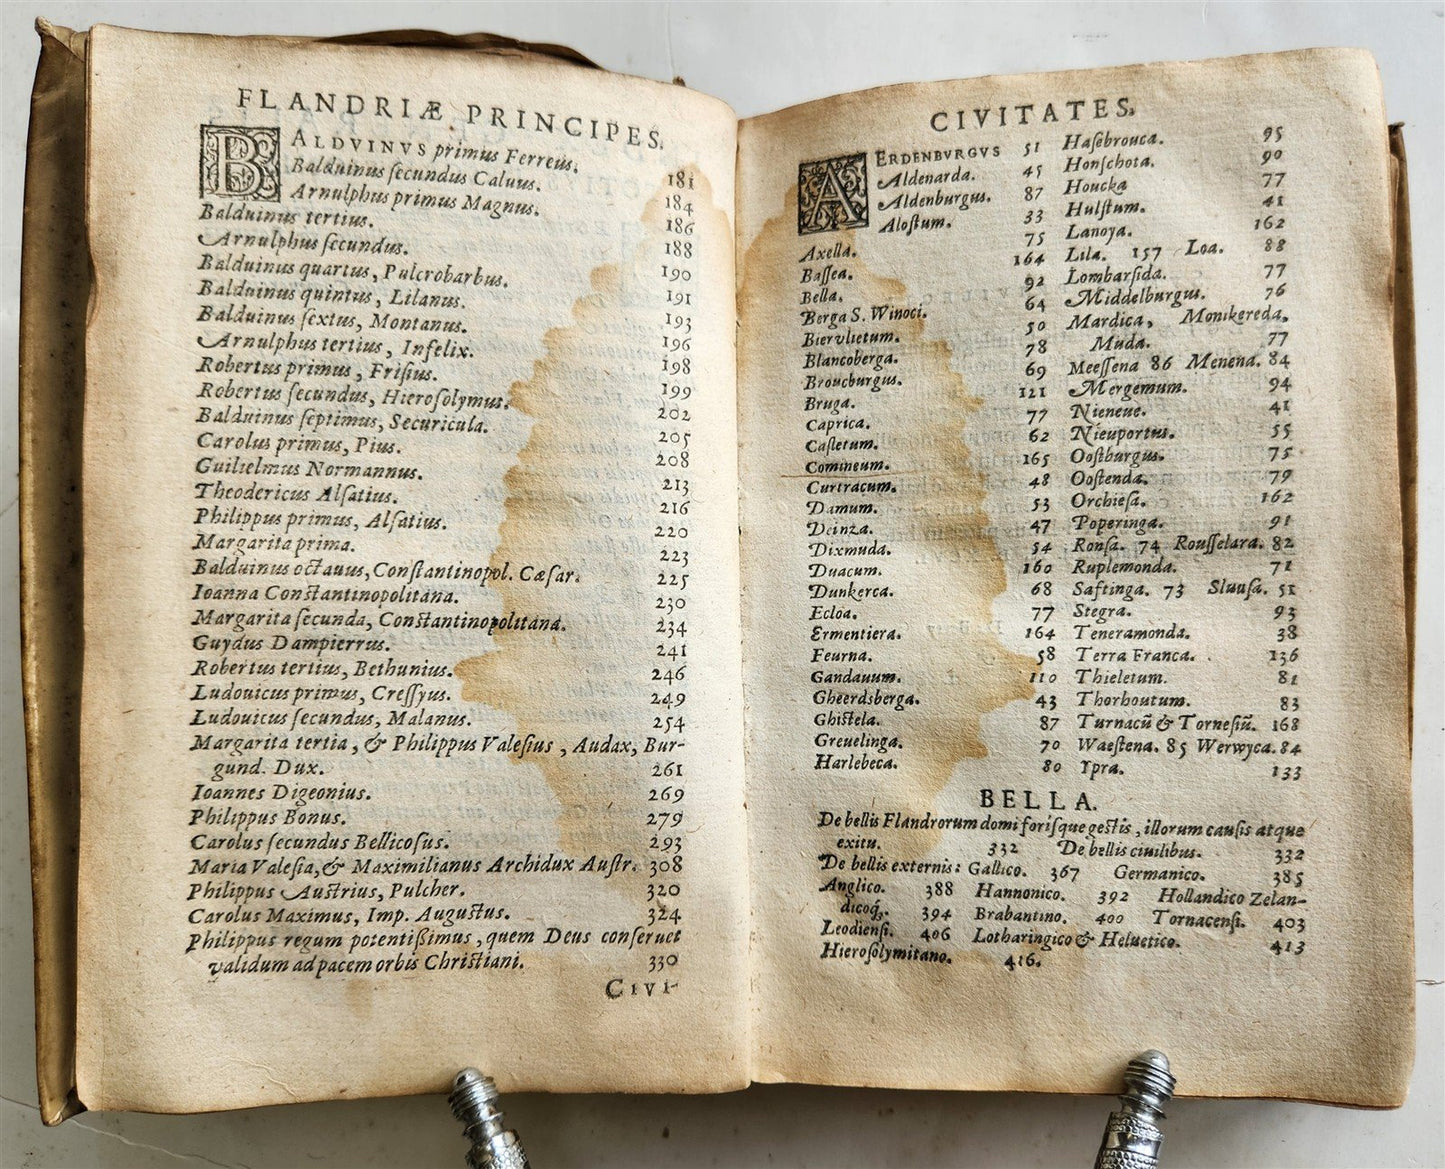 FLANDRIÆ PRINCIPES.
BALDVINVS primus Ferreus. 181
Balduinus ſecundus Caluus. 184
Arnulphus primus Magnus. 186
Balduinus tertius. 188
Arnulphus ſecundus. 190
Balduinus quartus, Pulcrobarbus. 191
Balduinus quintus, Lilanus. 193
Balduinus ſextus, Montanus. 196
Arnulphus tertius, Infelix. 198
Robertus primus, Friſius. 199
Robertus ſecundus, Hieroſolymus. 202
Balduinus ſeptimus, Securicula. 205
Carolus primus, Pius. 208
Guilielmus Normannus. 213
Theodericus Alſatius. 216
Philippus primus, Alſatius. 220
Margarita prima. 223
Balduinus octauus, Conſtantinopol. Cæſar. 225
Ioanna Conſtantinopolitana. 230
Margarita ſecunda, Conſtantinopolitana. 234
Guydus Dampierrus. 241
Robertus tertius, Bethunius. 246
Ludouicus primus, Creſſyus. 249
Ludouicus ſecundus, Malanus. 254
Margarita tertia, & Philippus Valeſius, Audax, Bur-
gund. Dux. 261
Ioannes Digeonius. 269
Philippus Bonus. 279
Carolus ſecundus Bellicoſus. 293
Maria Valeſia, & Maximilianus Archidux Auſtr. 308
Philippus Auſtrius, Pulcher. 320
Carolus Maximus, Imp. Auguſtus. 324
Philippus regum potentißimus, quem Deus conſeruet
validum ad pacem orbis Chriſtiani. 330
CIVI-
CIVITATES.
AERDENBVRGVS 51
Aldenarda. 45
Aldenburgus. 87
Aloſtum. 33
Axella. 75
Baſſea. 164
Bella. 92
Berga S. Winoci. 64
Bierulietum. 50
Blancoberga. 78
Broucburgus. 69
Bruga. 121
Caprica. 77
Caſletum. 62
Comineum. 165
Curtracum. 48
Damum. 53
Deinza. 47
Dixmuda. 54
Duacum. 160
Dunkerca. 68
Ecloa. 77
Ermentiera. 164
Feurna. 58
Gandauum. 110
Gheerdsberga. 43
Ghiſtela. 87
Greuelinga. 70
Harlebeca. 80
Haſebrouca. 95
Honſchota. 90
Houcke 77
Hulſtum. 41
Lanoya. 162
Lila. 157 Loa. 88
Lombarſida. 77
Middelburgus. 76
Mardica, Monikereda,
Muda. 77
Meeſſena 86 Menena. 84
Mergemum. 94
Nieneue. 41
Nieuportus. 55
Ooſtburgus. 75
Ooſtenda. 79
Orchieſa. 162
Poperinga. 91
Ronſa. 74 Rouſſelara. 82
Ruplemonda. 71
Saftinga. 73 Sluuſa. 51
Stegra. 93
Teneramonda. 38
Terra Franca. 136
Thieletum. 81
Thorhoutum. 83
Turnacū & Torneſiū. 168
Waeſtena. 85 Werwyca. 84
Ypra. 133
BELLA.
De bellis Flandrorum domi foriſque geſtis, illorum cauſis atque
exitu. 332 De bellis ciuilibus. 332
De bellis externis: Gallico. 367 Germanico. 385
Anglico. 388 Hannonico. 392 Hollandico Zelan-
dicoq́. 394 Brabantino. 400 Tornacenſi. 403
Leodienſi. 406 Lotharingico & Heluetico. 413
Hieroſolymitano. 416.